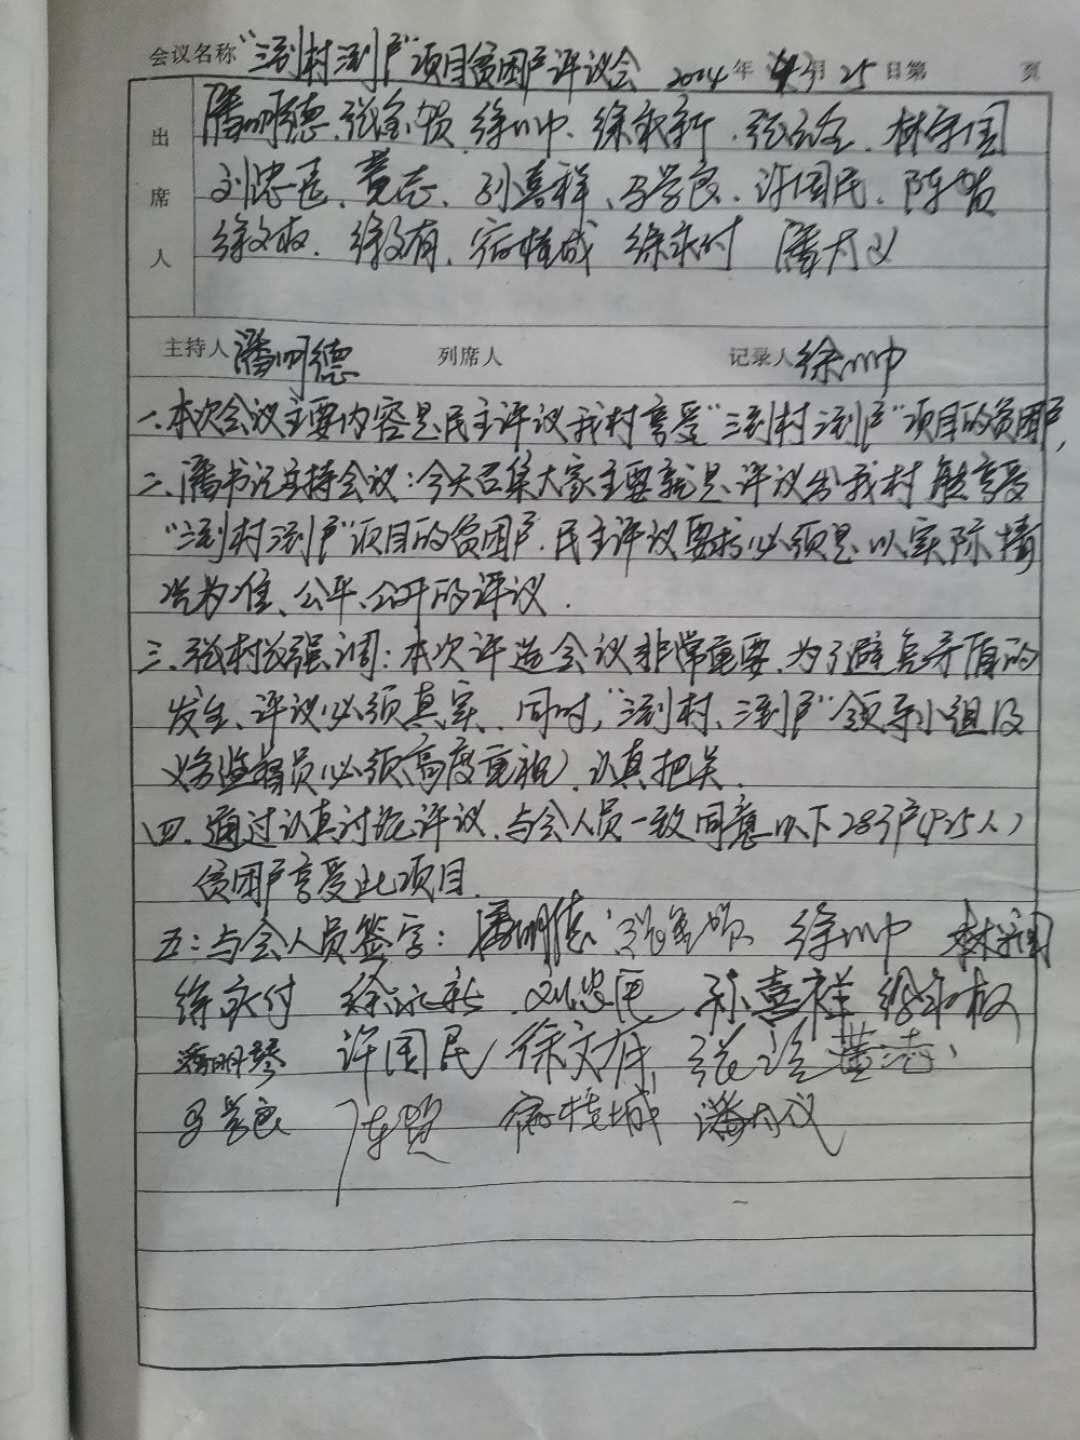 会议名称 "三到村三到户"项目贫困户评议会 2014年 月25日第 页
出席人
潘明德、张金贤、徐川中、徐永新、张云全、林守国
刘忠愿、黄志、孙喜祥、马学良、许国民、陈贤
徐文权、徐文有、宿桂成 徐永付 潘大义
主持人 潘明德 列席人 记录人 徐川中
一、本次会议主要内容是民主评议我村享受"三到村三到户"项目的贫困户,
二、潘书记主持会议:今天召集大家主要就是评议出我村能享受
"三到村三到户"项目的贫困户.民主评议要求必须是以实际情
况为准、公平、公开的评议.
三、张村长强调:本次评选会议非常重要、为了避免矛盾的
发生、评议必须真实、同时,"三到村、三到户"领导小组及
义务监督员必须高度重视、认真把关.
四、通过认真讨论评议、与会人员一致同意以下283户(925人)
贫困户享受此项目.
五:与会人员签字:潘明德 张金贤 徐川中 林守国
徐永付 徐永新 刘忠愿 孙喜祥 徐文权
潘明琴 许国民 徐文有 张 董志
马学良 陈贤 宿桂城 潘大义